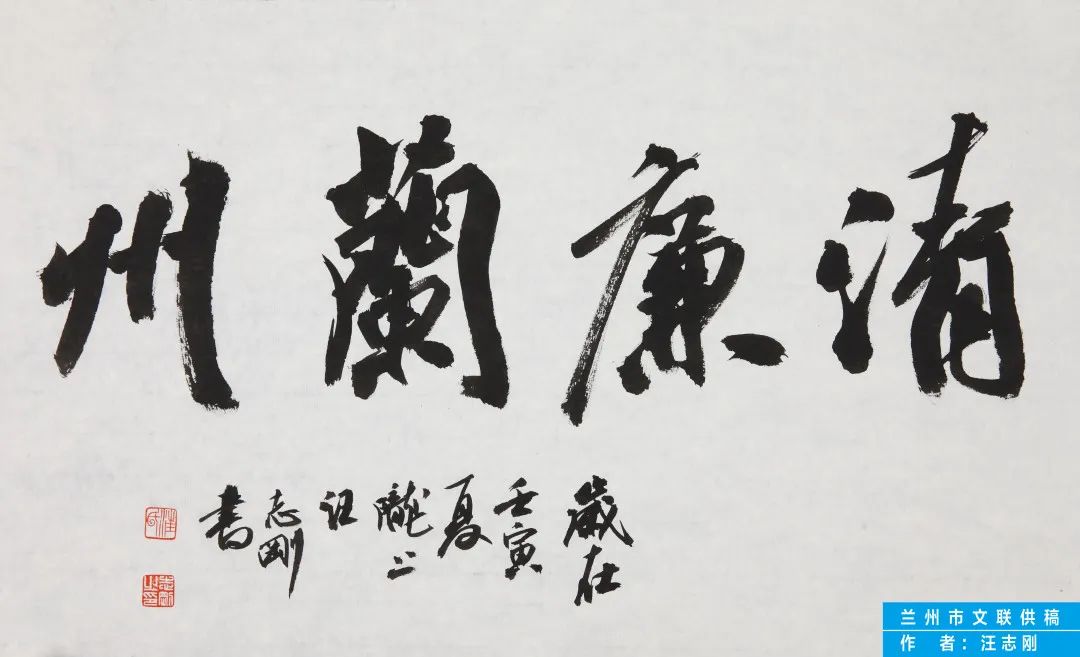 清廉蘭州
歲在
壬寅
夏
隴上
汪
志剛
書
汪氏
志剛之印
兰州市文联供稿
作 者:汪志刚